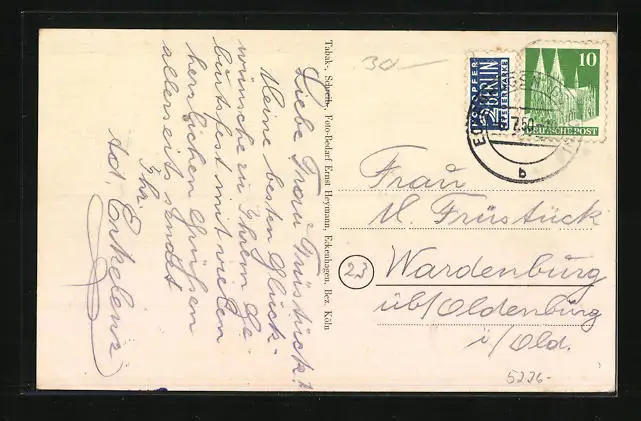 Liebe Frau Früstück!
Meine besten Glück-
wünsche zu Ihrem Ge-
burtsfest mit vielen
herzlichen Grüßen
allerseits sendet
Ihr
Ad. Erkelenz
Tabak-, Schreib-, Foto-Bedarf Ernst Heymann, Eckenhagen, Bez. Köln
30 —
NOTOPFER
2 BERLIN
STEUERMARKE
10
DEUTSCHE POST
7.50
b
Frau
M. Früstück
23
Wardenburg
üb/Oldenburg
i/Old.
5226-